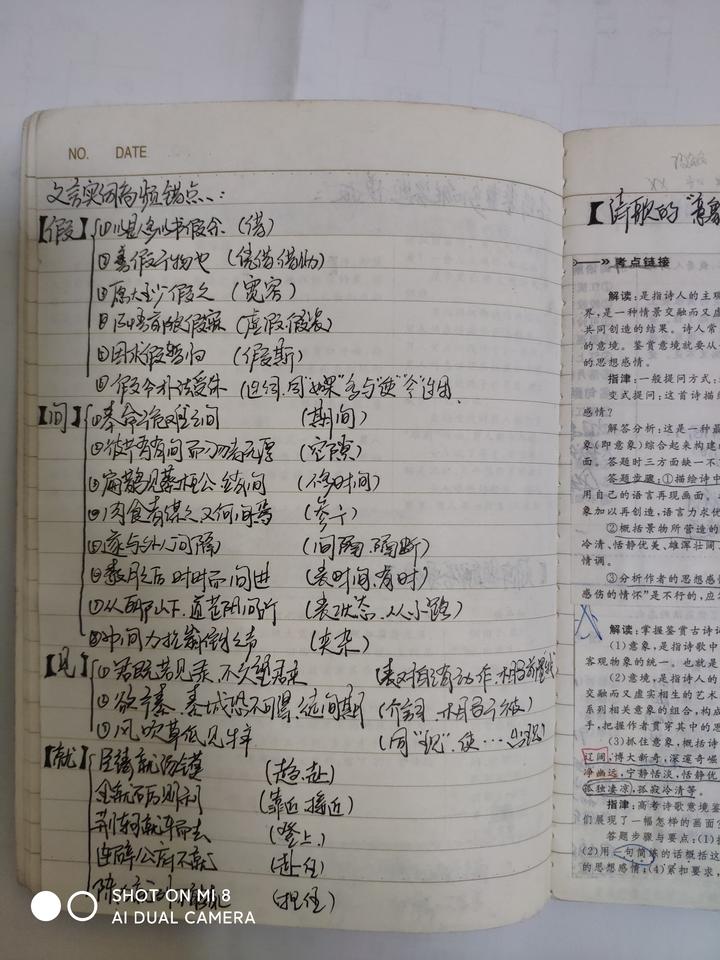 NO. DATE
文言实词高频错点：
【假】①以是人多以书假余 (借)
②善假于物也 (凭借 借助)
③愿大王少假之 (宽容)
假寐 (虚假 假装)
⑤因求假暂归 (假期)
⑥假令 (连词,同"如果"多与"使""令"连用.
【间】①奉命于危难之间 (期间)
②彼节者有间而刀刃者无厚 (空隙)
③扁鹊见蔡桓公,立有间 (一会时间)
④肉食者谋之,又何间焉 (参与)
⑤遂与外人间隔 (间隔.隔断)
⑥数月之后时时而间进 (表时间,有时)
⑦从郦山下,道芷阳间行 (表状态.从小路)
⑧中间力拉崩倒之声 (夹杂)
【见】
②欲予秦,秦城恐不可得,徒见欺 (介词 相当于被)
③风吹草低见牛羊 (同"现",使…出现)
【就】臣请就汤镬 (趋.赴)
金就砺则利 (靠近 接近)
荆轲就车而去 (登上)
连辟公府不就 (赴任)
(担任)
SHOT ON MI 8
AI DUAL CAMERA
【诗歌的"意象
考点链接
解读:是指诗人的主观
界,是一种情景交融而又虚
共同创造的结果。诗人常
的意境。鉴赏意境就要从
的思想感情。
指津:一般提问方式:
变式提问:这首诗描绘
感情?
解答分析:这是一种最
象(即意象)综合起来构建的
面。答题时三方面缺一不
答题步骤:①描绘诗中
用自己的语言再现画面。
象加以再创造,语言力求优
②概括景物所营造的
冷清、恬静优美、雄浑壮阔、
情调。
③分析作者的思想感情
感伤的情怀"是不行的,应
解读:掌握鉴赏古诗词
(1)意象,是指诗歌中
客观物象的统一。也就是
(2)意境,是指诗人的
交融而又虚实相生的艺术
系列相关意象的组合,构成
手,把握作者贯穿其中的思
(3)抓住意象,概括诗
辽阔,博大新奇,深邃奇崛
净幽远,宁静恬淡,恬静优
孤独凄凉,孤寂冷清等。
指津:高考诗歌意境鉴
们展现了一幅怎样的画面?
答题步骤与要点:(1)
(2)用一句简练的话概括这
的思想感情;(4)紧扣要求,